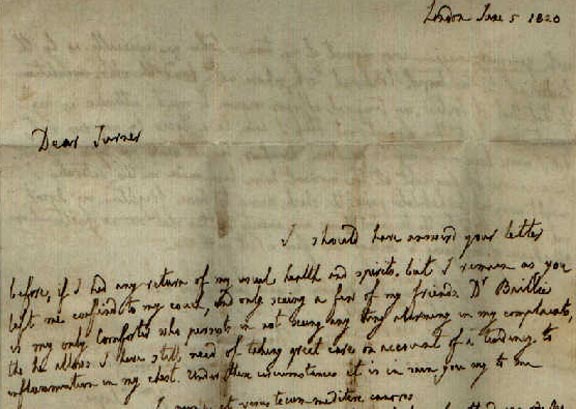 London June 5 1820
Dear Turner
I should have answerd your letter
before, if I had any return of my usual health and spirits. but I remain as you
left me confind to my couch, and only seeing a few of my friends. Dr Baillie
is my only comforter who persists in not seeing any thing alarming in my complaints,
tho he allows I have still need of taking great care on account of a tendency to
inflammation in my chest. Under these circumstances it is in vain you say to me
tecum